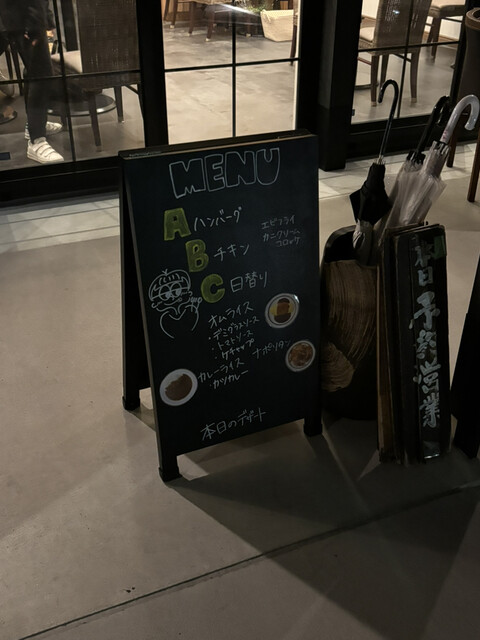 MENU
A ハンバーグ
エビフライ
カニクリーム
コロッケ
B チキン
C 日替り
オムライス
・デミグラスソース
・トマトソース
・ケチャップ
ナポリタン
カレーライス
・カツカレー
本日のデザート
本日
予約営業